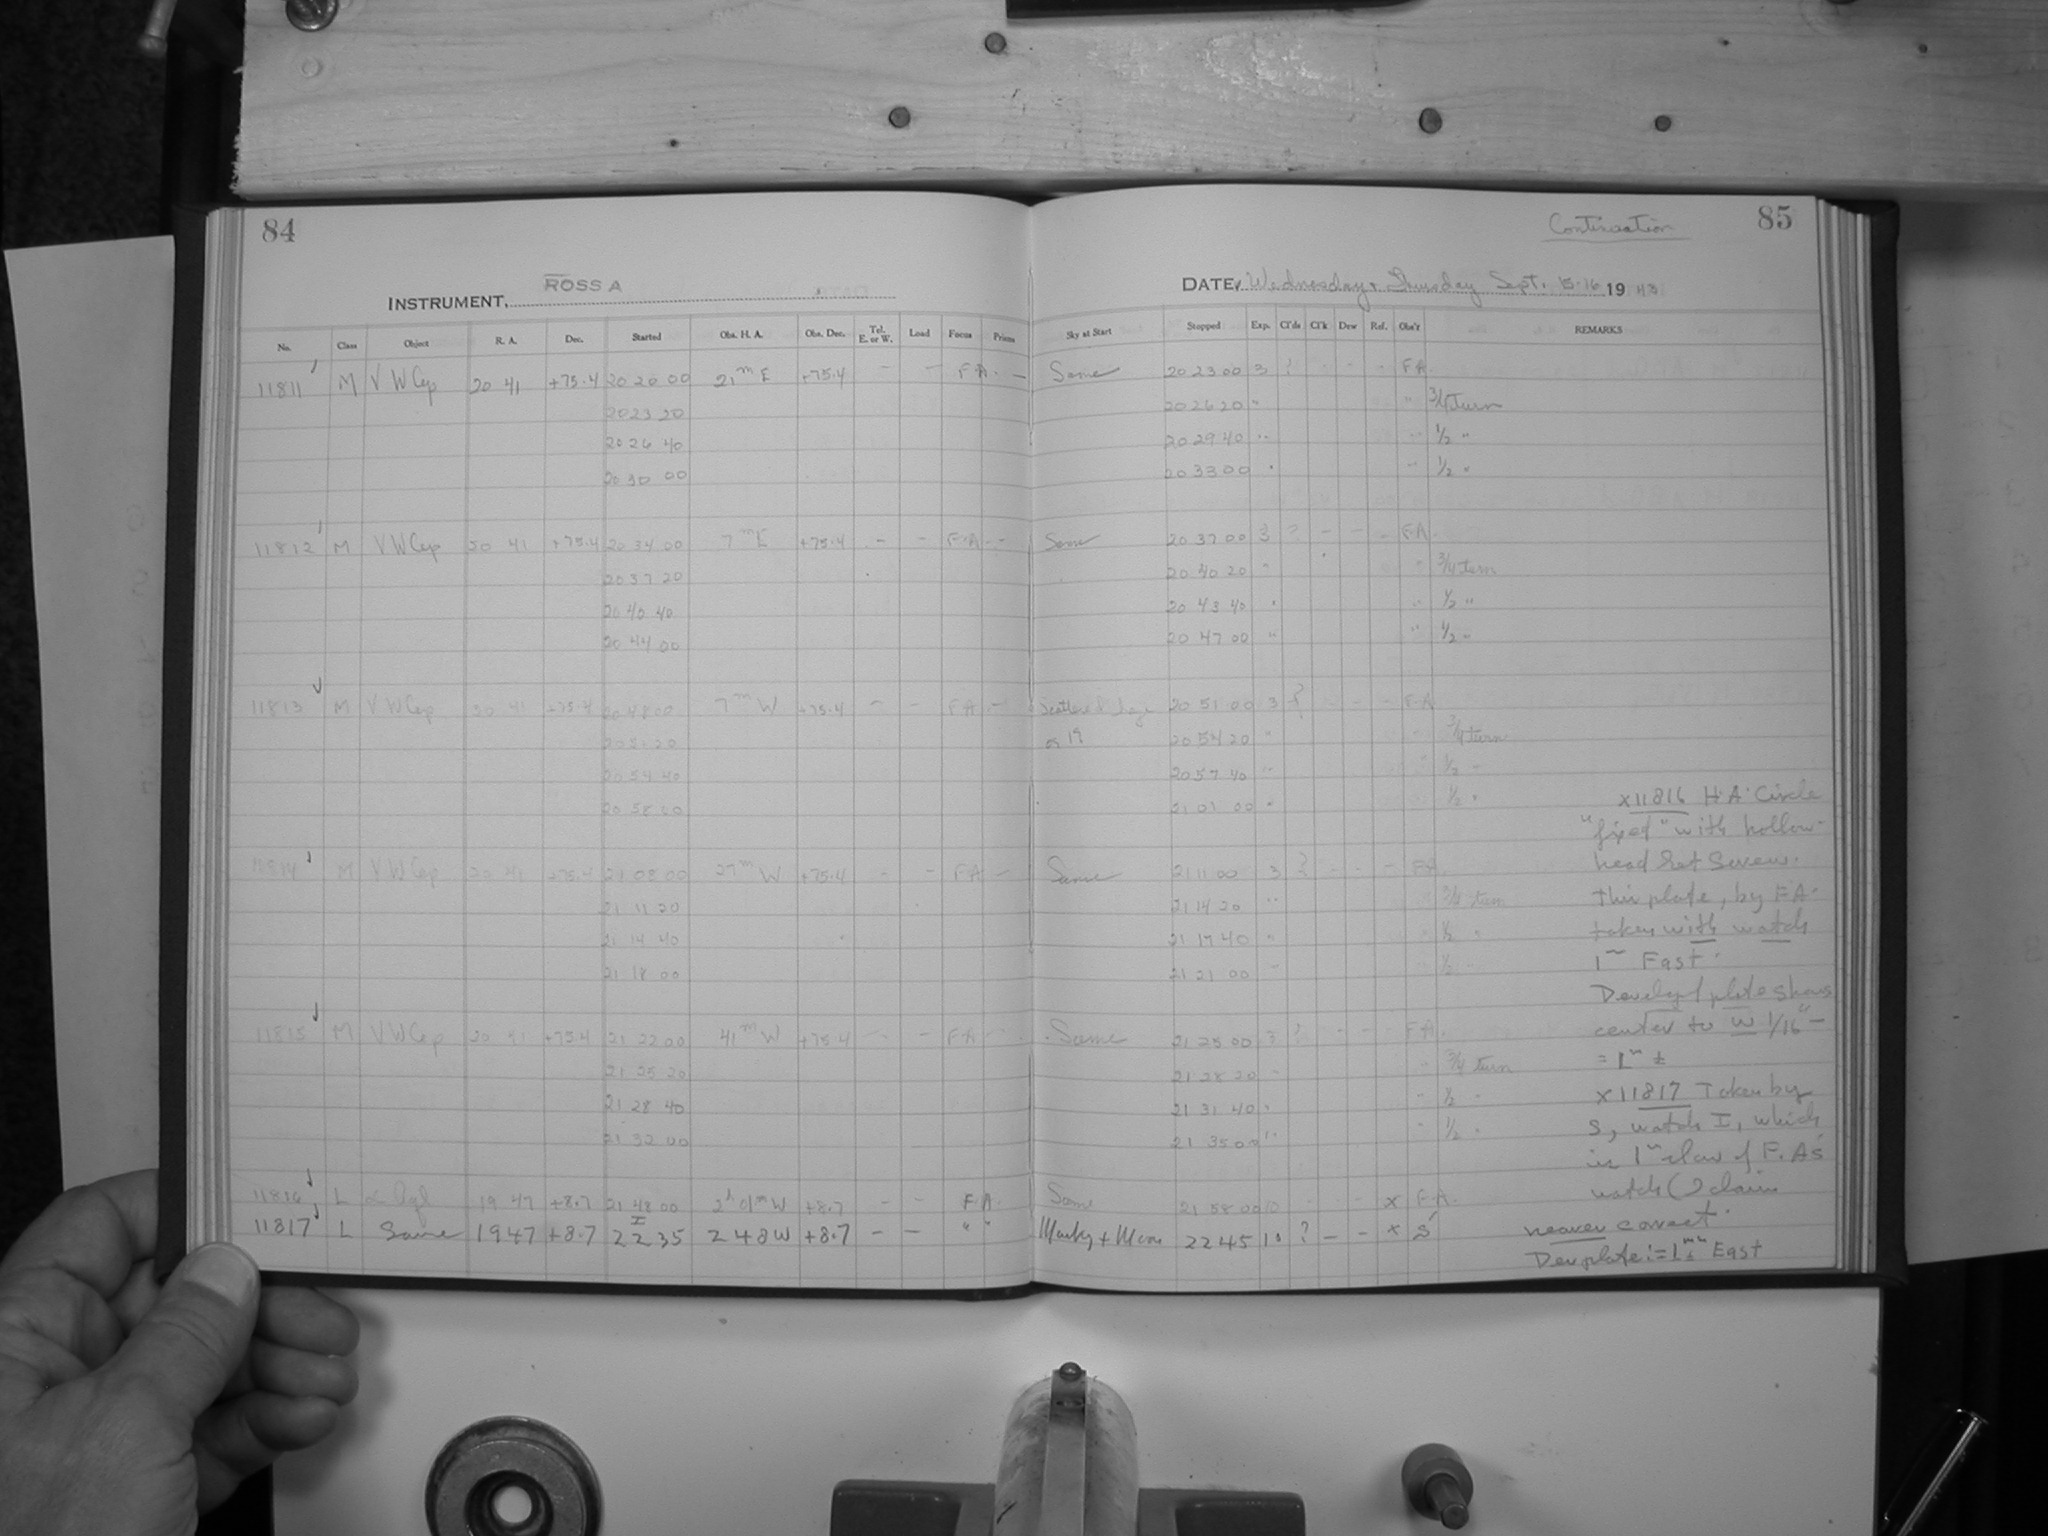 84
Continuation 85
INSTRUMENT, ROSS A
DATE, Wednesday + Thursday Sept. 15-16 19 43
No. Class Object R. A. Dec. Started Obs. H. A. Obs. Dec. Tel. E. or W. Load Focus Prisms Sky at Start Stopped Exp. Cl'ds Cl'k Drw Ref. Obs'r REMARKS
11811 M V W Cep 20 41 +75.4 20 20 00 21ᵐ E +75.4 - - FA. - Same 20 23 00 3 ? - - - FA
20 23 20 20 26 20 " " 3/4 turn
20 26 40 20 29 40 " " 1/2 "
20 30 00 20 33 00 " " 1/2 "
11812 M V W Cep 20 41 +75.4 20 34 00 7ᵐ E +75.4 - - F.A - Same 20 37 00 3 ? - - - FA.
20 37 20 20 40 20 " " 3/4 turn
20 40 40 20 43 40 " " 1/2 "
20 44 00 20 47 00 " " 1/2 "
11813 M V W Cep 20 41 +75.4 20 48 00 7ᵐ W +75.4 - - FA - Scattered haze 20 51 00 3 ? - - - FA
20 54 20 " " 3/4 turn
20 54 40 20 57 40 " " 1/2 "
21 01 00 " " 1/2 "
11814 M V W Cep 20 41 +75.4 21 08 00 27ᵐ W +75.4 - - FA - Same 21 11 00 3 ? - - - FA
21 11 20 21 14 20 " 3/4 turn
21 14 40 21 17 40 " 1/2 "
21 18 00 21 21 00 " 1/2 "
11815 M V W Cep 20 41 +75.4 21 22 00 41ᵐ W +75.4 - - FA - Same 21 25 00 3 ? - - - FA.
21 25 20 21 28 20 " " 3/4 turn
21 28 40 21 31 40 " " 1/2 "
21 32 00 21 35 00 " " 1/2 "
11816 L α Aql 19 47 +8.7 21 48 00 2ʰ 01ᵐ W +8.7 - - FA Same 21 58 00 10 - - - x F.A.
I
11817 L Same 19 47 +8.7 22 35 2 48 W +8.7 - - " " Murky + Moon 22 45 10 ? - - x S
x 11816 H.A. Circle
"fixed" with hollow-
head Set Screw.
this plate, by F.A.
taken with watch
1ᵐ East.
plate shows
center to W 1/16" -
= 1ᵐ ±
x 11817 Taken by
S, watch I, which
is 1ᵐ slow of F. A's
watch (I claim
nearer correct.
Dev plate: = 1ᵐ ± East